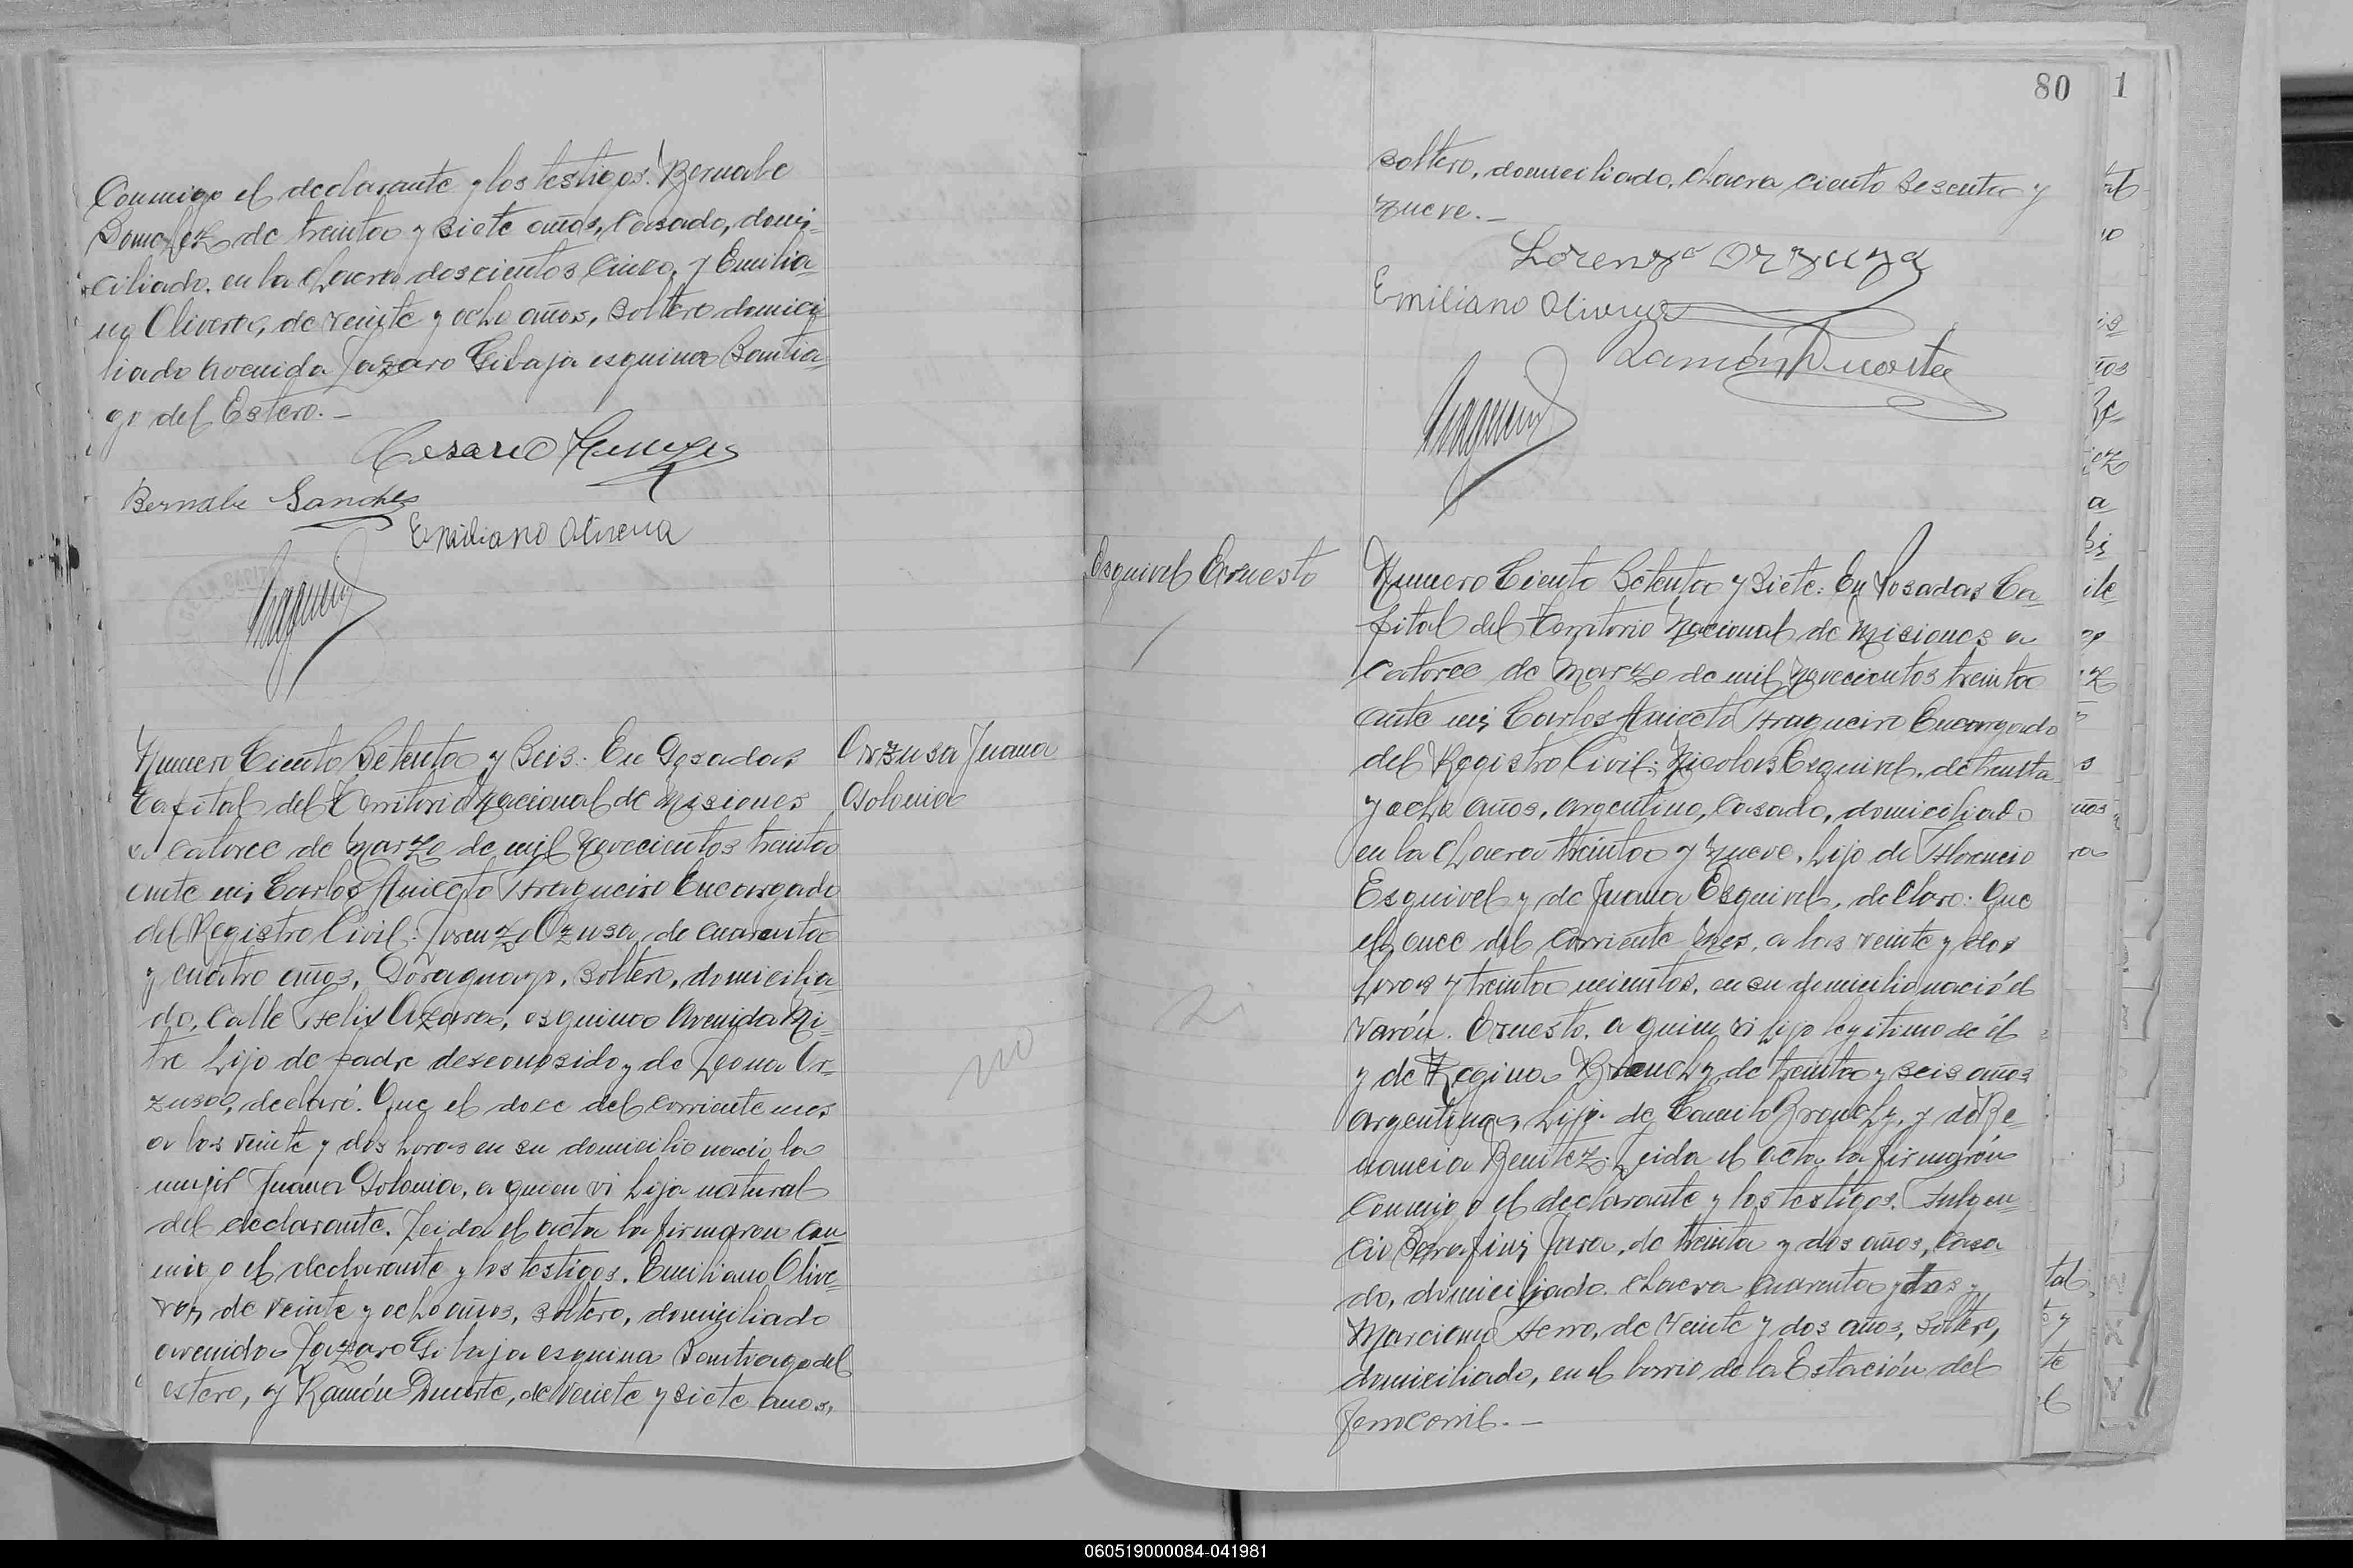 Conmigo el declarante y los testigos. Bernabe
de treinta y siete años, Casado, domi-
ciliado, en la chacra doscientos Cinco, y Emilia-
no Olivera, de veinte y ocho años, soltero domici-
liado Avenida Lazaro Gibaja esquina Santia-
go del Estero.-
Cesareo
Bernabe Sanches
Emiliano Olivera
Numero Ciento Setenta y Seis. En Posadas
Capital del Territorio Nacional de Misiones
a catorce de Marzo de mil Novecientos treinta
ante mi, Carlos Aniceto Fragueiro Encargado
del Registro Civil: Lorenzo Orzusa, de cuarenta
y cuatro años, Paraguayo, soltero, domicilia-
do, Calle Felix Azara, esquina Avenida Mi-
tre hijo de padre desconosido y de Leona Or-
zusa, declaró. Que el doce del corriente mes,
a las veinte y dos horas en su domicilio nacio la
mujer Juana Polonia, a quien vi hija natural
del declarante. Leida el acta la firmaron con-
migo el declarante y los testigos. Emiliano Olive-
ra, de veinte y ocho años, soltero, domiciliado
avenida Lazaro Gibaja esquina Santiago del
estero, y Ramón Duarte, de veinte y siete años,
Orzusa Juana
Polonia
no
80
1
soltero, domiciliado, chacra ciento sesenta y
nueve.-
Lorenzo Orzuza
Emiliano Olivera
Ramón Duarte
Esquivel Ernesto
Si
Numero Ciento Setenta y Siete: En Posadas Ca-
pital del Territorio Nacional de Misiones a
catorce de Marzo de mil Novecientos treinta
ante mi, Carlos Aniceto Fragueiro Encargado
del Registro Civil: Nicolas Esquivel, de treinta
y ocho años, argentino, Casado, domiciliado
en la chacra treinta y nueve, hijo de Florencio
Esquivel y de Juana Esquivel, declaro: Que
el once del corriente mes, a las veinte y dos
horas y treinta minutos, en su domicilio nació el
varón. Ernesto, a quien vi hijo legitimo de él
y de Regina de treinta y seis años
argentina, hija de Camilo y de Re-
nancia Benitez. Leida el acta la firmarón
conmigo el declarante y los testigos. Fulgen-
cio Serafini Jara, de treinta y dos años, Casa
do, domiciliado. chacra cuarenta y dos y
Marciano Ferro, de veinte y dos años, soltero,
domiciliado, en el barrio de la Estación del
ferrocarril.-
060519000084-041981